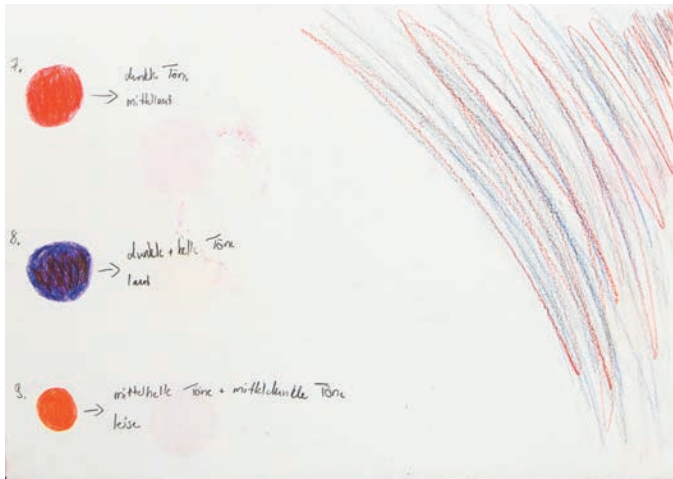 7.
dunkle Töne
mittellaut
8.
dunkle + helle Töne
laut
9.
mittelhelle Töne + mitteldunkle Töne
leise